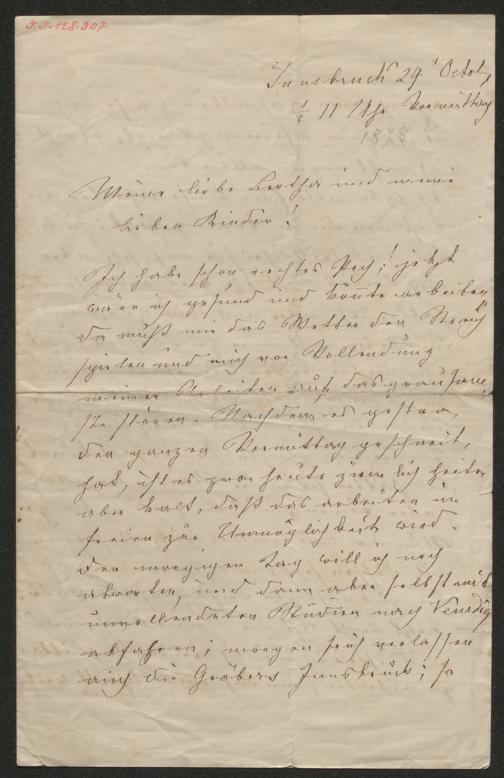 I.N.128.307
Innsbruck 29t Octob,
½ 11 Uhr Vormittag
18 8 ?
Meine liebe Bertha und meine
lieben Kinder!
Ich habe schon rechtes Pech; jetzt
wäre ich gesund und könnte arbeiten
da muß mir das Wetter den Streich
spielen und mich vor Vollendung
meiner Arbeiten auf das grausam-
ste stören. Nachdem es gestern,
den ganzen Vormittag geschneit,
hat, ist es zwar heute ziemlich heiter
aber kalt, daß das arbeiten im
freien zur Unmöglichkeit wird.
den morgigen Tag will ich noch
abwarten, und dann aber selbst mit
unvollendeten Studien nach Venedig
abfahren; morgen früh verlassen
auch die Gröbers Innsbruck; so